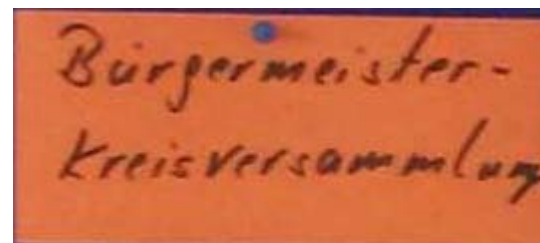 Bürgermeister-
Kreisversammlung